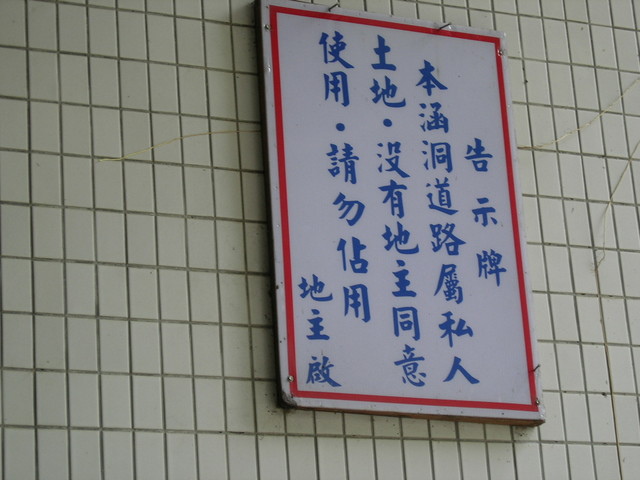 告示牌
本涵洞道路屬私人
土地·没有地主同意
使用·請勿佔用
地主啟